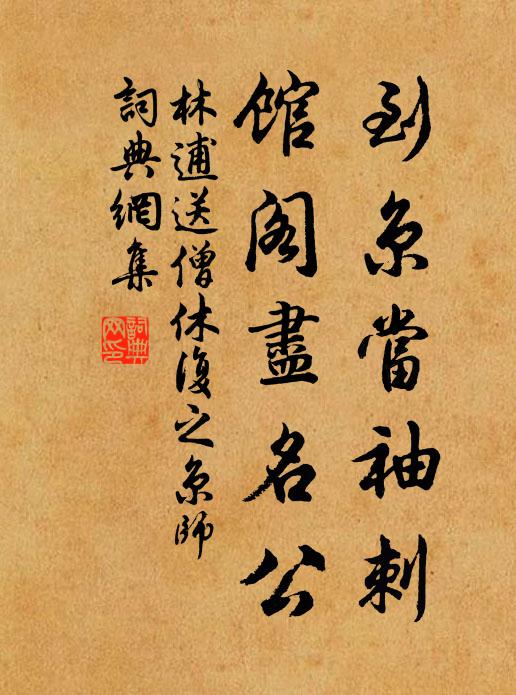 到京當袖刺
館閣盡名公
林逋送僧休復之京師
詞典網集
詞典網印